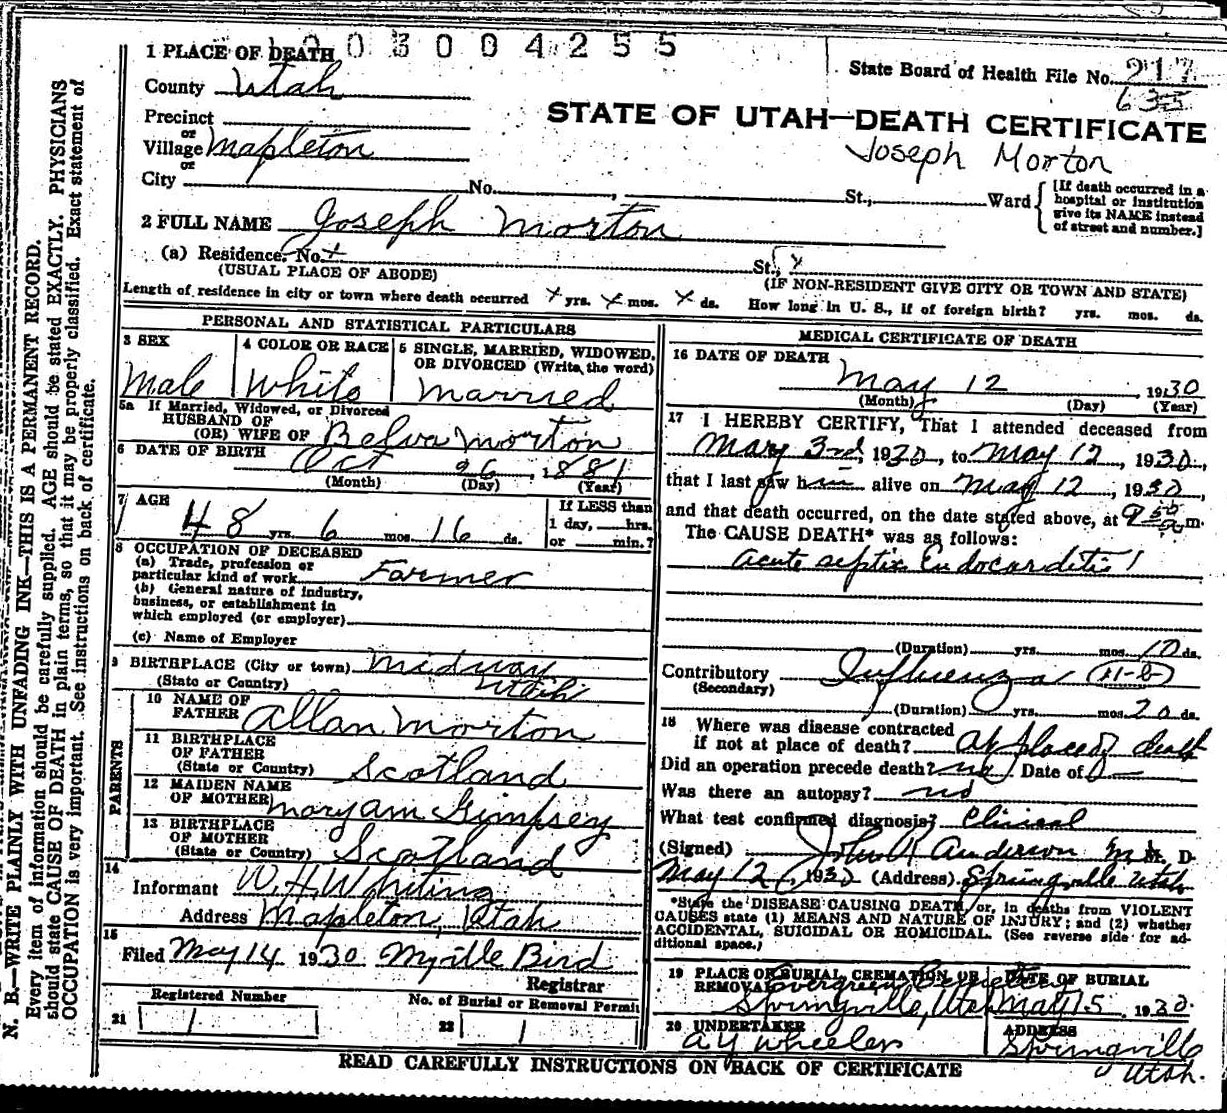 1 PLACE OF DEATH 1 0 0 3 0 0 4 2 5 5
State Board of Health File No. 217
635
County Utah
Precinct
or
Village Mapleton
or
City No. , St., Ward
STATE OF UTAH—DEATH CERTIFICATE
Joseph Morton
[If death occurred in a hospital or institution give its NAME instead of street and number.]
2 FULL NAME Joseph Morton
(a) Residence. No. x St., x
(USUAL PLACE OF ABODE) (IF NON-RESIDENT GIVE CITY OR TOWN AND STATE)
Length of residence in city or town where death occurred x yrs. x mos. x ds. How long in U. S., if of foreign birth? yrs. mos. ds.
PERSONAL AND STATISTICAL PARTICULARS
3 SEX
Male
4 COLOR OR RACE
White
5 SINGLE, MARRIED, WIDOWED,
OR DIVORCED (Write the word)
Married
5a If Married, Widowed, or Divorced
HUSBAND OF
(OR) WIFE OF Belva Morton
6 DATE OF BIRTH Oct 26, 1881
(Month) (Day) (Year)
7 AGE
48 yrs. 6 mos. 16 ds.
If LESS than
1 day, hrs.
or min.?
8 OCCUPATION OF DECEASED
(a) Trade, profession or
particular kind of work Farmer
(b) General nature of industry,
business, or establishment in
which employed (or employer)
(c) Name of Employer
9 BIRTHPLACE (City or town) Midway
(State or Country) Utah
PARENTS
10 NAME OF
FATHER Allan Morton
11 BIRTHPLACE
OF FATHER
(State or Country) Scotland
12 MAIDEN NAME
OF MOTHER Mary am
13 BIRTHPLACE
OF MOTHER
(State or Country) Scotland
14
Informant W. H. Whiting
Address Mapleton, Utah
15
Filed May 14 1930 Myrtle Bird
Registrar
Registered Number
21 /
No. of Burial or Removal Permit
22 /
MEDICAL CERTIFICATE OF DEATH
16 DATE OF DEATH
May 12, 1930
(Month) (Day) (Year)
17 I HEREBY CERTIFY, That I attended deceased from
May 3rd, 1930, to May 12, 1930,
that I last saw him alive on May 12, 1930,
and that death occurred, on the date stated above, at 9 50 a m.
The CAUSE DEATH* was as follows:
acute septic Endocarditis
(Duration) yrs. mos. 10 ds.
Contributory Influenza (11-B)
(Secondary)
(Duration) yrs. mos. 20 ds.
18 Where was disease contracted
if not at place of death? At place of death
Did an operation precede death? no Date of —
Was there an autopsy? no
What test confirmed diagnosis? Clinical
(Signed) John Anderson M. D.
May 12, 1930 (Address) Springville Utah
*State the DISEASE CAUSING DEATH, or, in deaths from VIOLENT
CAUSES state (1) MEANS AND NATURE OF INJURY; and (2) whether
ACCIDENTAL, SUICIDAL OR HOMICIDAL. (See reverse side for ad-
ditional space.)
19 PLACE OF BURIAL, CREMATION, OR
REMOVAL Evergreen Cemetery
Springville, Utah
DATE OF BURIAL
May 15, 1930
20 UNDERTAKER
A Y Wheeler
ADDRESS
Springville
Utah.
READ CAREFULLY INSTRUCTIONS ON BACK OF CERTIFICATE
N. B.—WRITE PLAINLY WITH UNFADING INK—THIS IS A PERMANENT RECORD.
Every item of information should be carefully supplied. AGE should be stated EXACTLY. PHYSICIANS
should state CAUSE OF DEATH in plain terms, so that it may be properly classified. Exact statement of
OCCUPATION is very important. See instructions on back of certificate.